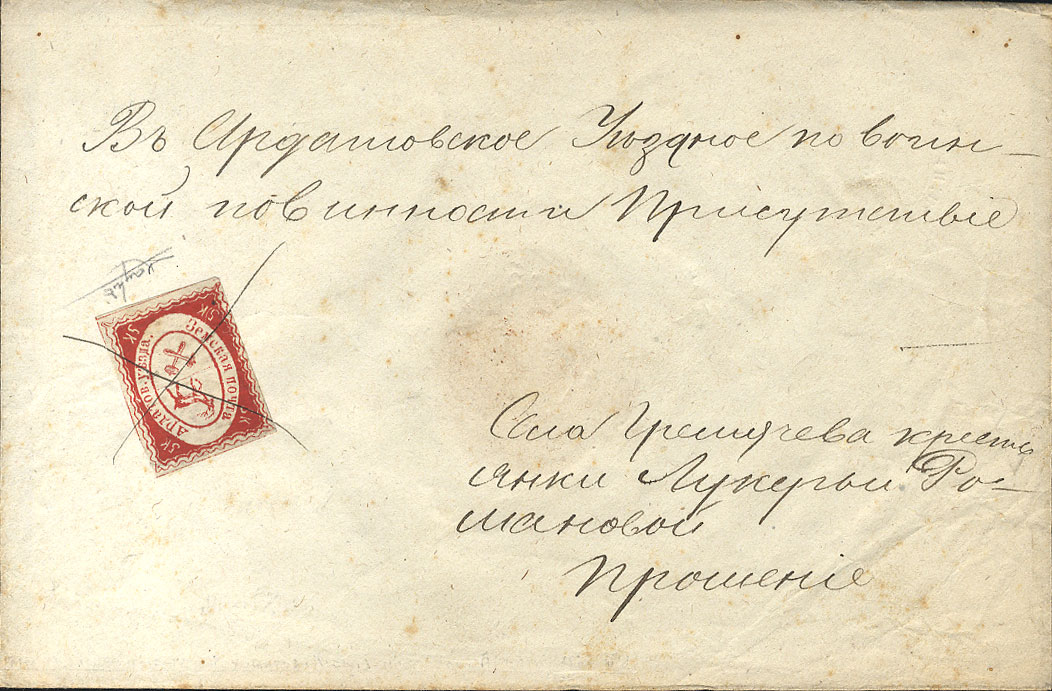 Въ Ардатовское Уѣздное по воин-
ской повинности Присутствіе
5К
5К
Земская почта
Ардатов. уѣзда.
5К
К
Села Гремячева кресть
янки Лукерьи Ро-
мановой
Прошеніе